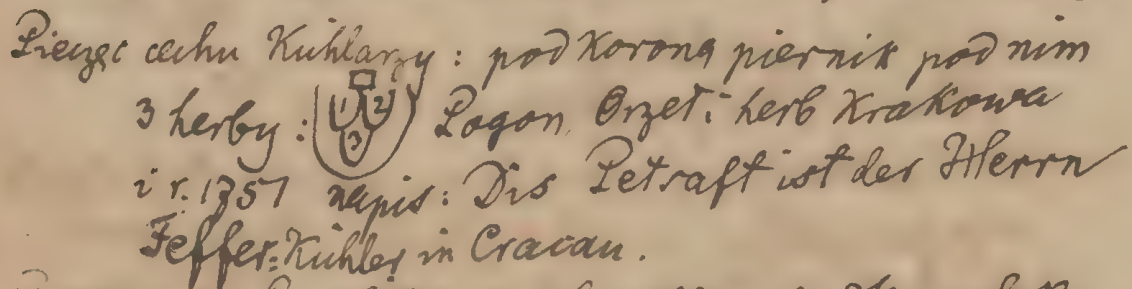 Pieczęć cechu Kuhlarzy : pod Koroną piernik pod nim
3 herby : 1 2 3 Pogoń, Orzeł i herb Krakowa
i r. 1757 napis: Dis Petsaft ist der Herrn
Feffer=Kuhler in Cracau.